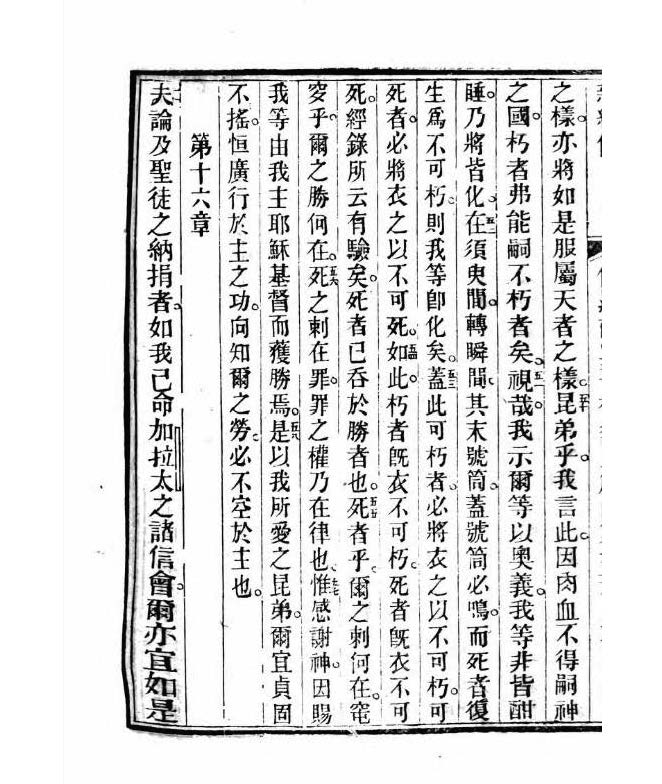 之樣。亦將如是服屬天者之樣。五十昆弟乎。我言此。因肉血不得嗣神
之國。朽者弗能嗣不朽者矣。五一視哉。我示爾等以奧義。我等非皆酣
睡。乃將皆化。五二在須臾間。轉瞬間。其末號筒。蓋號筒必鳴。而死者復
生爲不可朽。則我等卽化矣。五三蓋此可朽者。必將衣之以不可朽。可
死者。必將衣之以不可死。五四如此。朽者旣衣不可朽。死者旣衣不可
死。經錄所云有驗矣。死者已吞於勝者也。五五死者乎。爾之刺何在。窀
穸乎。爾之勝何在。五六死之刺在罪。罪之權乃在律也。五七惟感謝神。因賜
我等由我主耶穌基督而獲勝焉。五八是以我所愛之昆弟。爾宜貞固
不搖。恒廣行於主之功。向知爾之勞。必不空於主也。
第十六章
夫論及聖徒之納捐者。如我已命加拉太之諸信會。爾亦宜如是